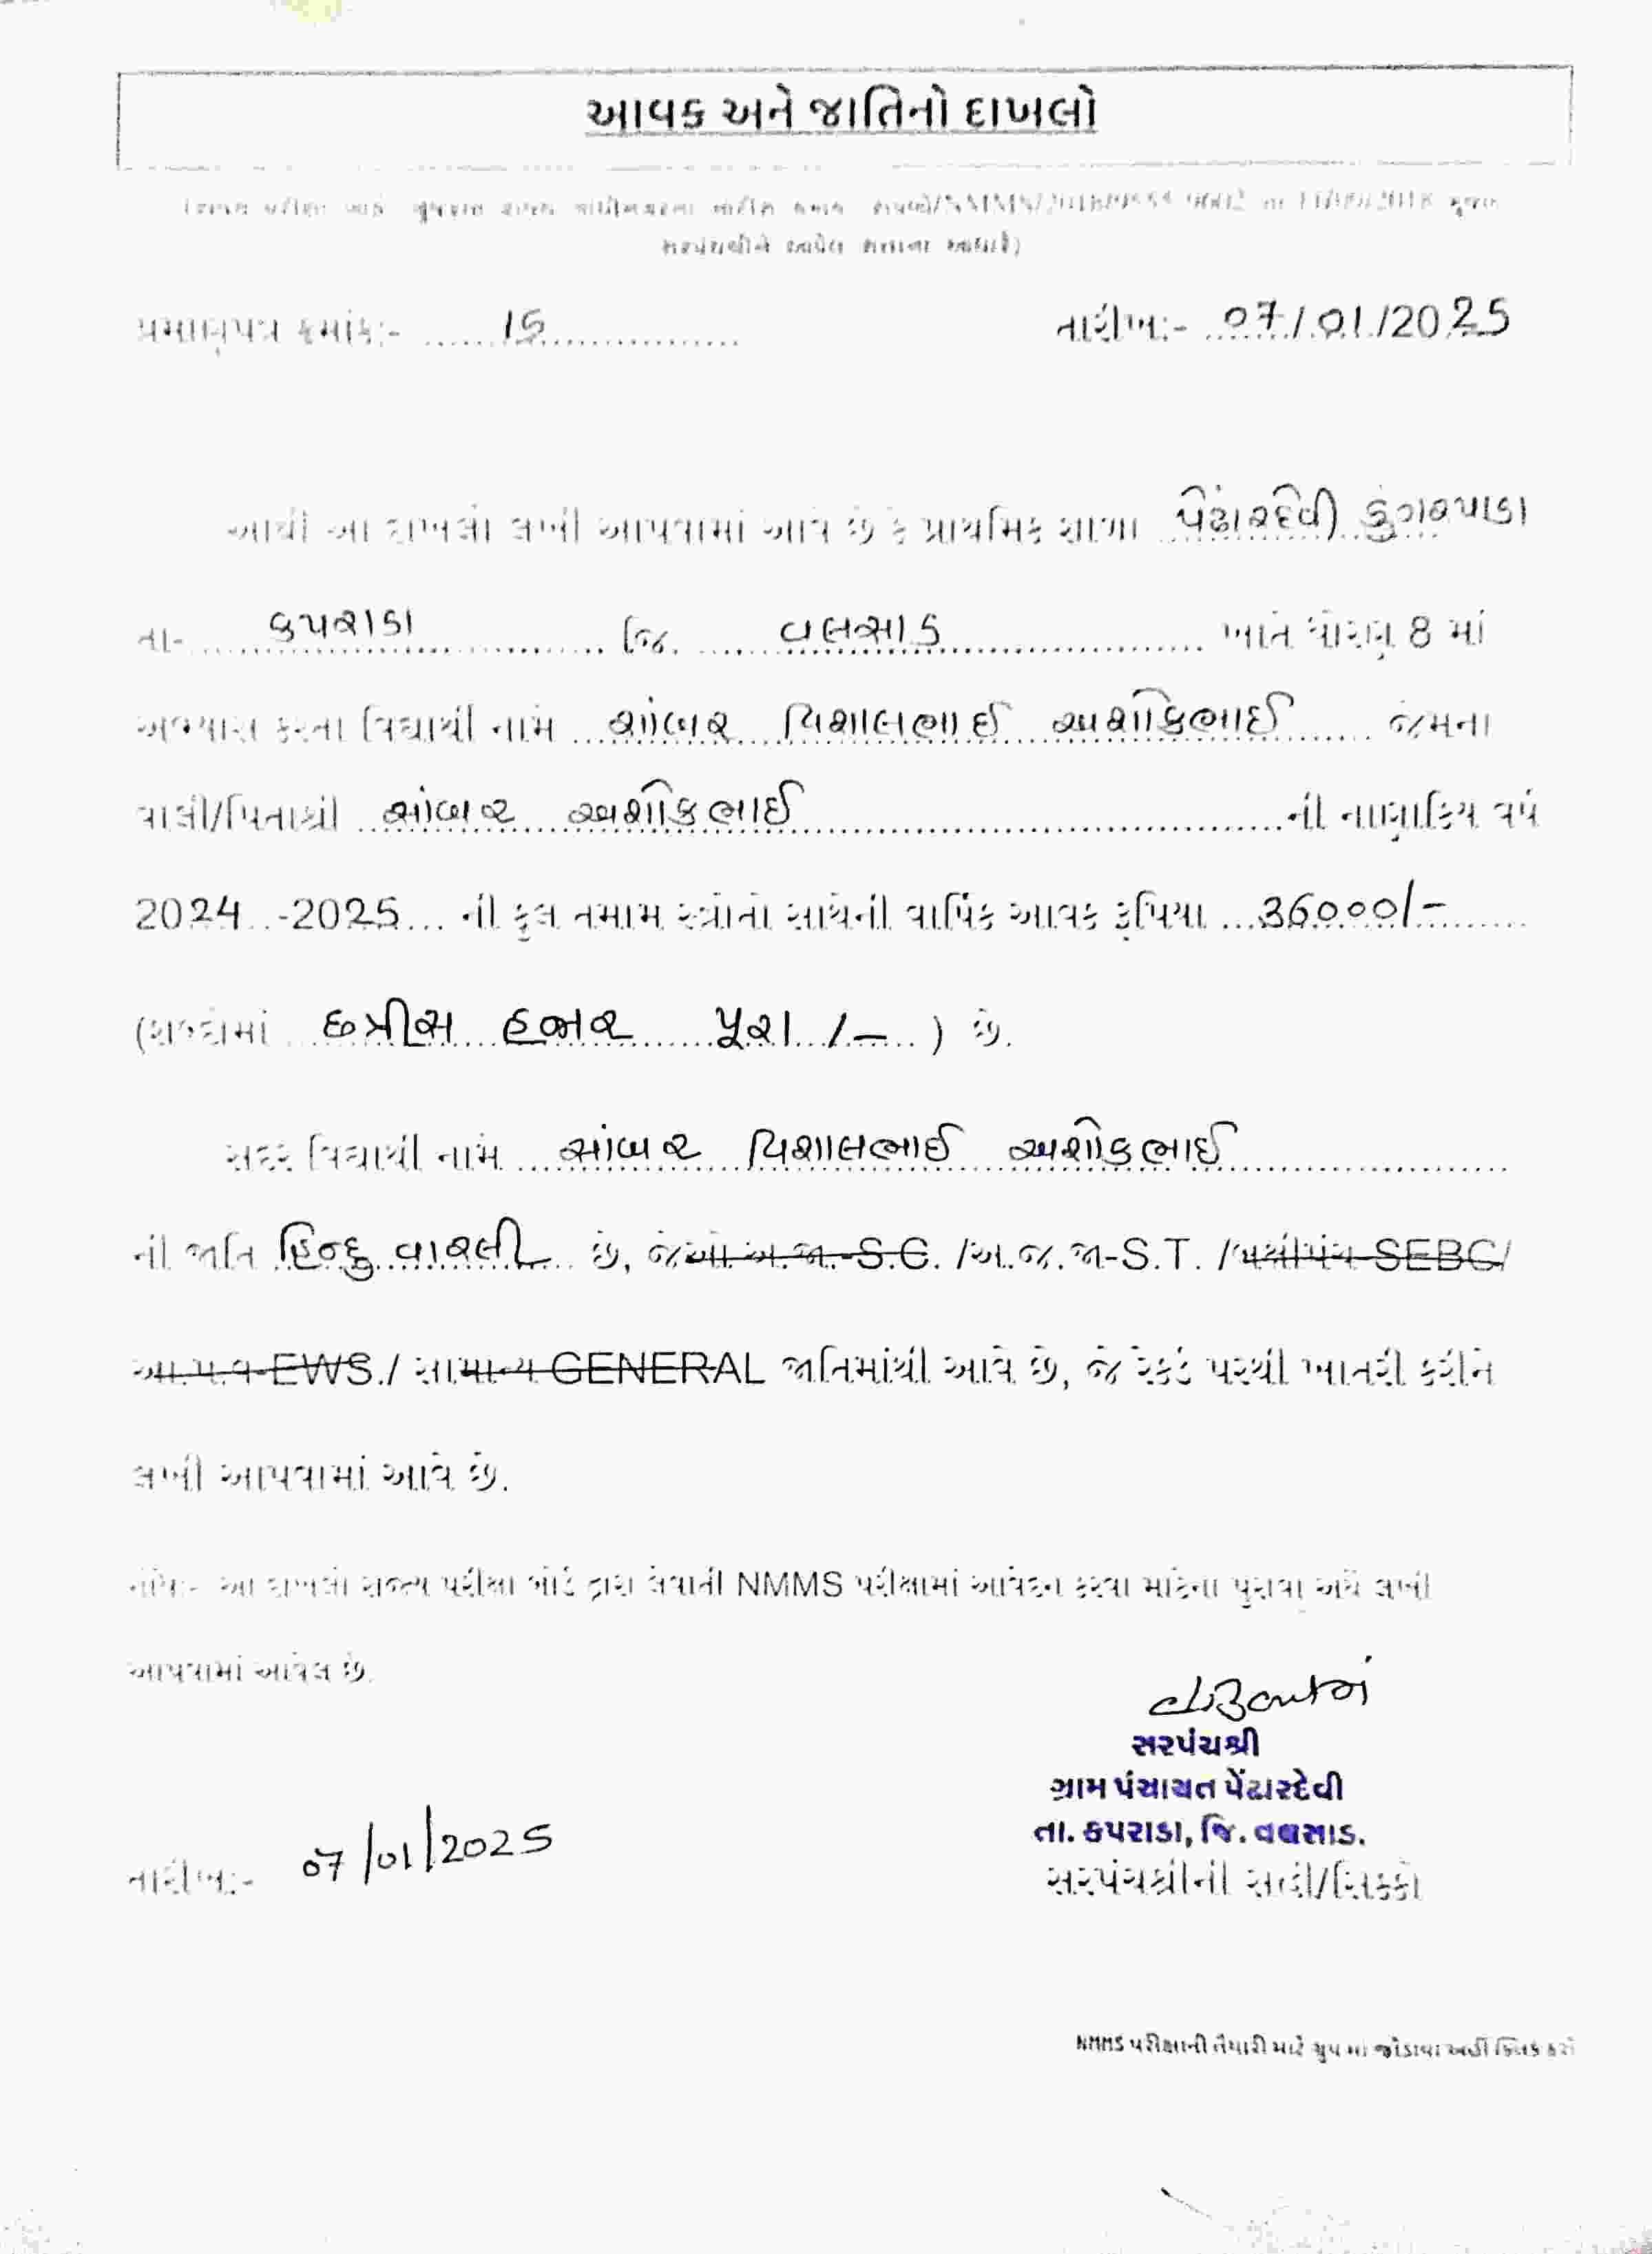 આવક અને જાતિનો દાખલો
સરપંચશ્રીને આપેલ સત્તાના આધારે)
પ્રમાણપત્ર ક્રમાંક:- 15 તારીખ:- 07/01/2025
આથી આ દાખલો લખી આપવામાં આવે છે કે પ્રાથમિક શાળા પેંઢારદેવી ડુંગરપાડા
તા- કપરાડા જિ. વલસાડ ખાતે ધોરણ 8 માં
અભ્યાસ કરતા વિદ્યાર્થી નામ સાંબર વિશાલભાઈ અશોકભાઈ જેમના
વાલી/પિતાશ્રી સાંબર અશોકભાઈ ની નાણાકિય વર્ષ
2024..-2025... ની કુલ તમામ સ્ત્રોતો સાથેની વાર્ષિક આવક રૂપિયા ...36000/-
(શબ્દોમાં છત્રીસ હજાર પૂરા /- ) છે.
સદર વિદ્યાર્થી નામ સાંબર વિશાલભાઈ અશોકભાઈ
ની જાતિ હિન્દુ વારલી છે, જેઓ અ.જા.-S.C. /અ.જ.જા-S.T. /બક્ષીપંચ-SEBC/
આ.પ.વ-EWS./ સામાન્ય GENERAL જાતિમાંથી આવે છે, જે રેકર્ડ પરથી ખાતરી કરીને
લખી આપવામાં આવે છે.
નોંધ:- આ દાખલો રાજ્ય પરીક્ષા બોર્ડ દ્વારા લેવાતી NMMS પરીક્ષામાં આવેદન કરવા માટેના પુરાવા અર્થે લખી
આપવામાં આવેલ છે.
સરપંચશ્રી
ગ્રામ પંચાયત પેંઢારદેવી
તા. કપરાડા, જિ. વલસાડ.
તારીખ:- 07/01/2025 સરપંચશ્રીની સહી/સિક્કો
NMMS પરીક્ષાની તૈયારી માટે ગ્રુપ મા જોડાવા અહીં ક્લિક કરો